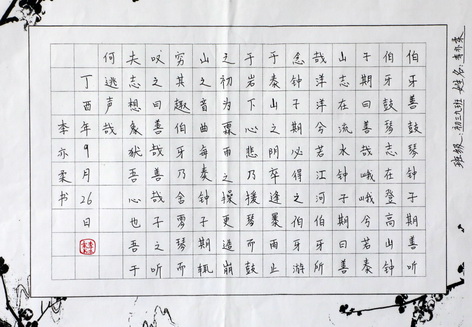 班级：初三九班 姓名：李亦柔
伯牙善鼓琴钟子期善听
伯牙鼓琴志在登高山钟
子期曰善哉峨峨兮若泰
山志在流水钟子期曰善
哉洋洋兮若江河伯牙所
念钟子期必得之伯牙游
于泰山之阴卒逢暴雨止
于岩下心悲乃援琴而鼓
之初为霖雨之操更造崩
山之音曲每奏钟子期辄
穷趣伯牙乃舍琴而
叹曰善哉善哉子之听
夫志想象犹吾心也吾于
何逃声哉
丁酉年9月26日
李亦柔书